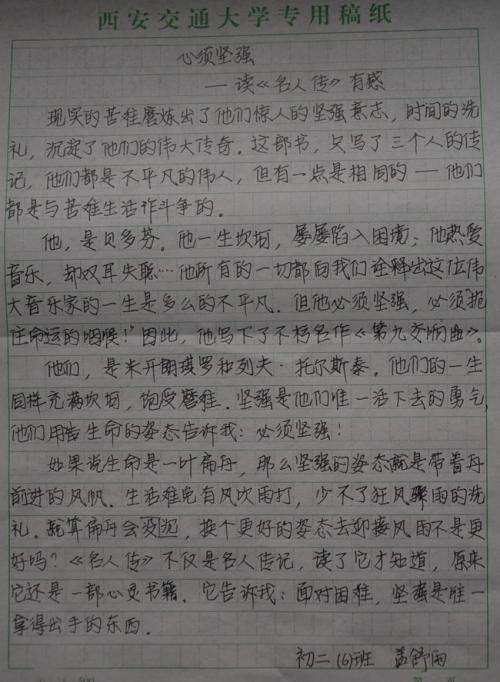 西安交通大学专用稿纸
必须坚强
——读《名人传》有感
现实的苦难磨炼出了他们惊人的坚强意志，时间的洗
礼，沉淀了他们的伟大传奇。这部书，只写了三个人的传
记，他们都是不平凡的伟人，但有一点是相同的——他们
都是与苦难生活作斗争的。
他，是贝多芬。他一生坎坷，屡屡陷入困境；他热爱
音乐，却双耳失聪…他所有的一切都向我们诠释出这位伟
大音乐家的一生是多么的不平凡。但他必须坚强，必须“扼
住命运的咽喉！”因此，他写下了不朽名作《第九交响曲》。
他们，是米开朗琪罗和列夫·托尔斯泰。他们的一生
同样充满坎坷，饱受磨难。坚强是他们唯一活下去的勇气，
他们用生命的姿态告诉我：必须坚强！
如果说生命是一叶扁舟，那么坚强的姿态就是带着舟
前进的风帆。生活难免有风吹雨打，少不了狂风骤雨的洗
礼。就算扁舟会没沉，换个更好的姿态去迎接风雨不是更
好吗？《名人传》不仅是名人传记，读了它才知道，原来
它还是一部心灵书籍。它告诉我：面对困难，坚强是唯一
拿得出手的东西。
初二（6）班 孟舒雨